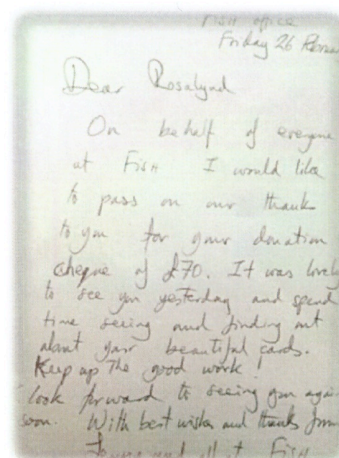 FISH office
Friday 26 Februar
Dear Rosalynd
On behalf of everyone
at FISH I would like
to pass on our thanks
to you for your donation
cheque of £70. It was lovely
to see you yesterday and spend
time seeing and finding out
about your beautiful cards.
Keep up the good work!
look forward to seeing you again
soon. With best wishes and thanks from
and all at FISH